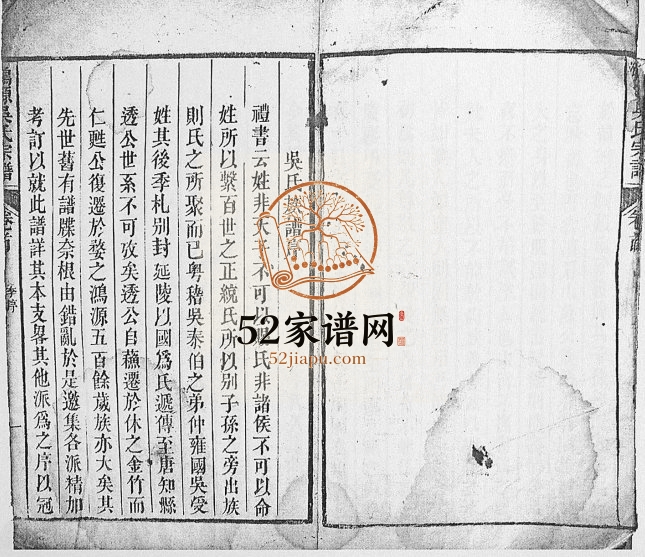 吳氏宗譜
吳氏族譜序
禮書云姓非天子不可以賜氏非諸侯不可以命
姓所以繫百世之正統氏所以別子孫之旁出族
則氏之所聚而已粵稽吳泰伯之弟仲雍國吳受
姓其後季札別封延陵以國爲氏遞傳至唐知縣
透公世系不可攷矣透公自蕪遷於休之金竹而
仁甦公復遷於婺之鴻源五百餘歲族亦大矣其
先世舊有譜牒奈根由錯亂於是邀集各派精加
考訂以就此譜詳其本支畧其他派爲之序以冠
鴻源吳氏宗譜
52家谱网
52jiapu.com